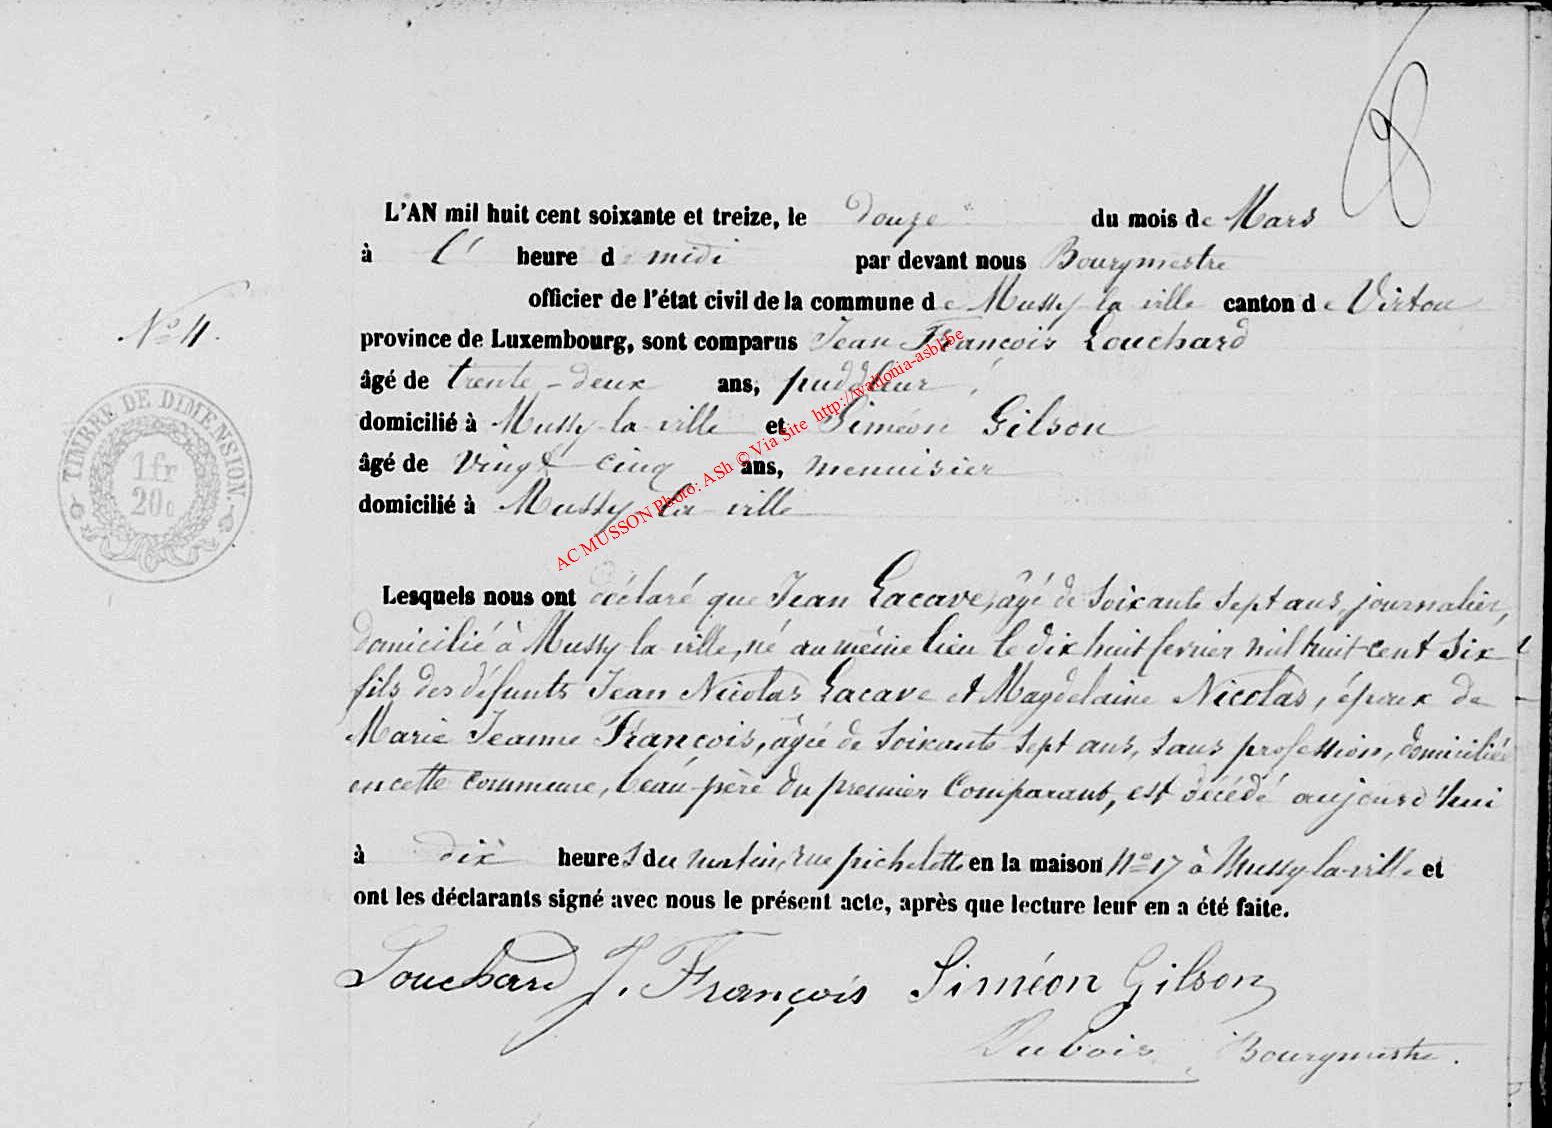 8
L'AN mil huit cent soixante et treize, le douze du mois de Mars
à l' heure de midi par devant nous Bourgmestre
officier de l'état civil de la commune de Mussy-la-ville canton de Virton
N° 4.
province de Luxembourg, sont comparus Jean François Louchard
âgé de trente-deux ans, puddleur,
domicilié à Mussy-la-ville et Siméon Gilson
âgé de vingt-cinq ans, menuisier
domicilié à Mussy-la-ville
TIMBRE DE DIMENSION
1 fr
20 c
AC MUSSON Photo: ASh © Via Site http://wallonia-asbl.be
Lesquels nous ont déclaré que Jean Lacave, âgé de soixante sept ans, journalier,
domicilié à Mussy-la-ville, né au même lieu le dix huit fevrier mil huit cent six
fils des défunts Jean Nicolas Lacave et Magdelaine Nicolas, époux de
Marie Jeanne François, âgée de soixante-sept ans, sans profession, domiciliée
en cette commune, beau-père du premier Comparant, est décédé aujourd'hui
à dix heures du matin, rue pichelotte en la maison N° 17 à Mussy-la-ville et
ont les déclarants signé avec nous le présent acte, après que lecture leur en a été faite.
Louchard J. François Siméon Gilson
Dubois Bourgmestre.